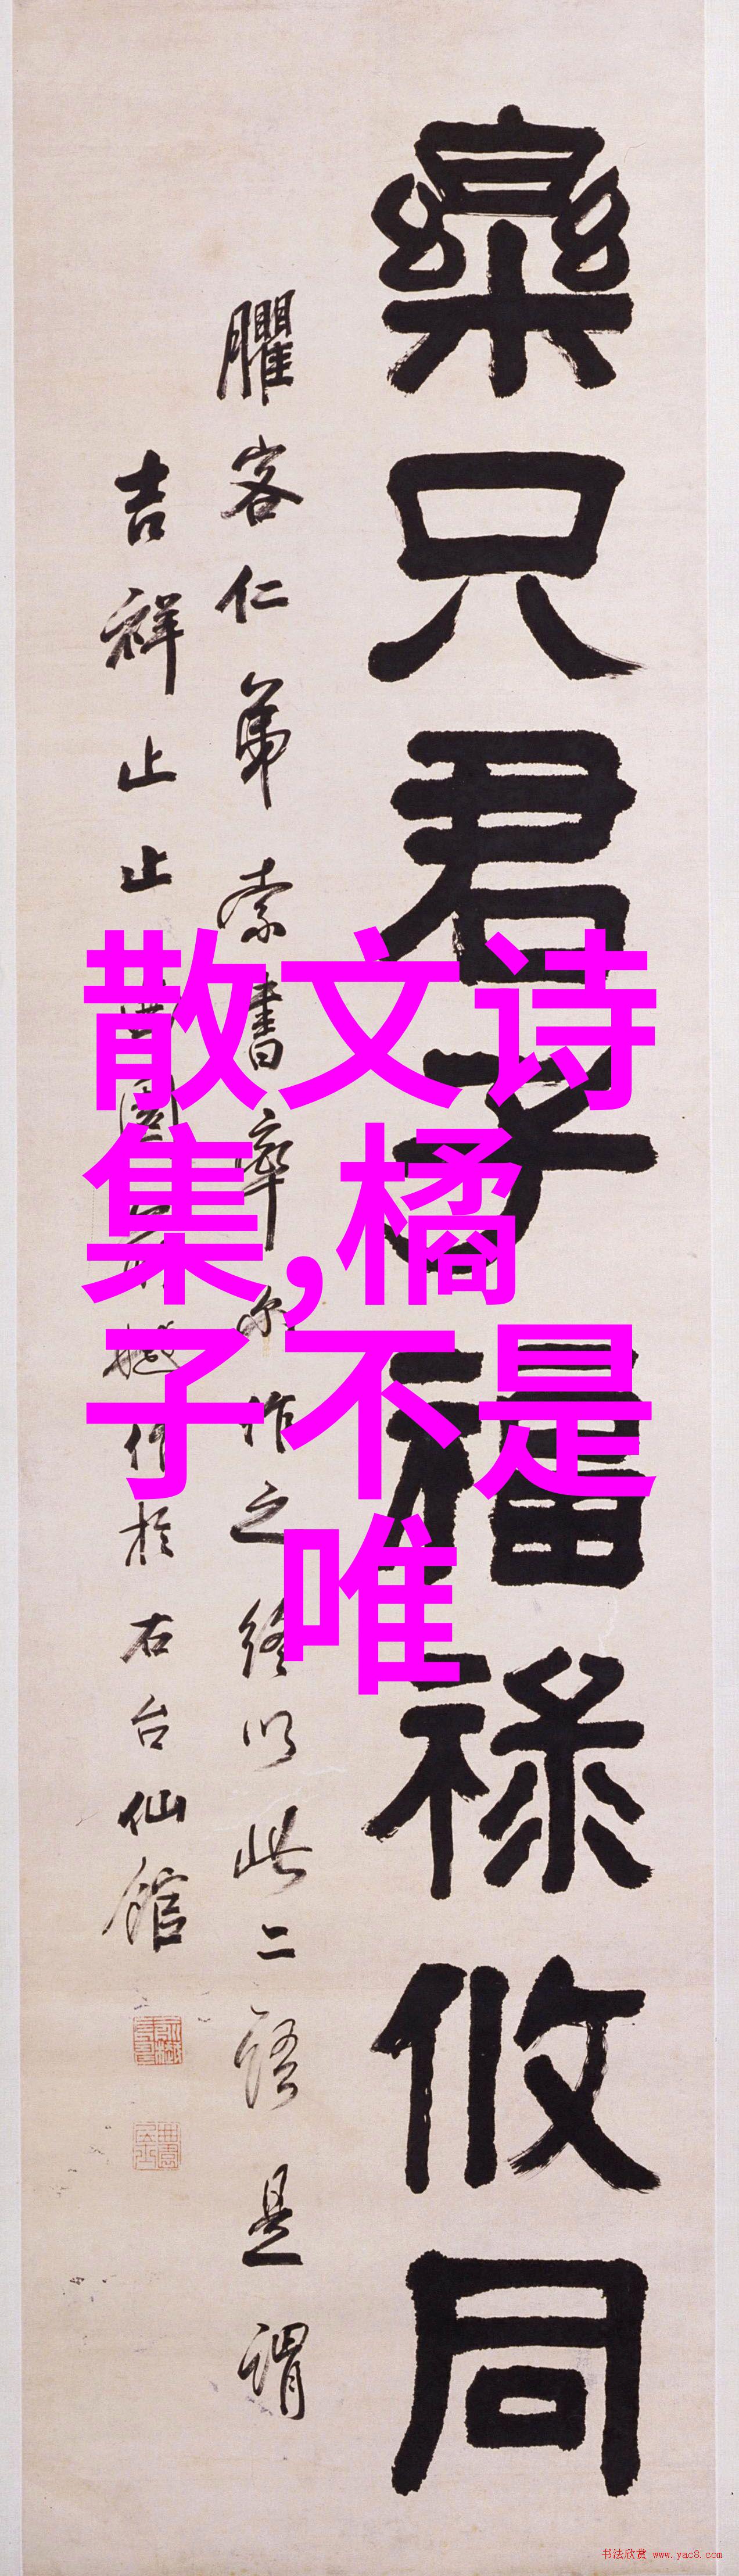 樂只君子福祿攸同
臞客仁弟索書率尔作之终以此二語是謂
吉祥止止
作於右台仙館
散文诗
集,橘
子不是
唯
书法欣赏 www.yac8.com